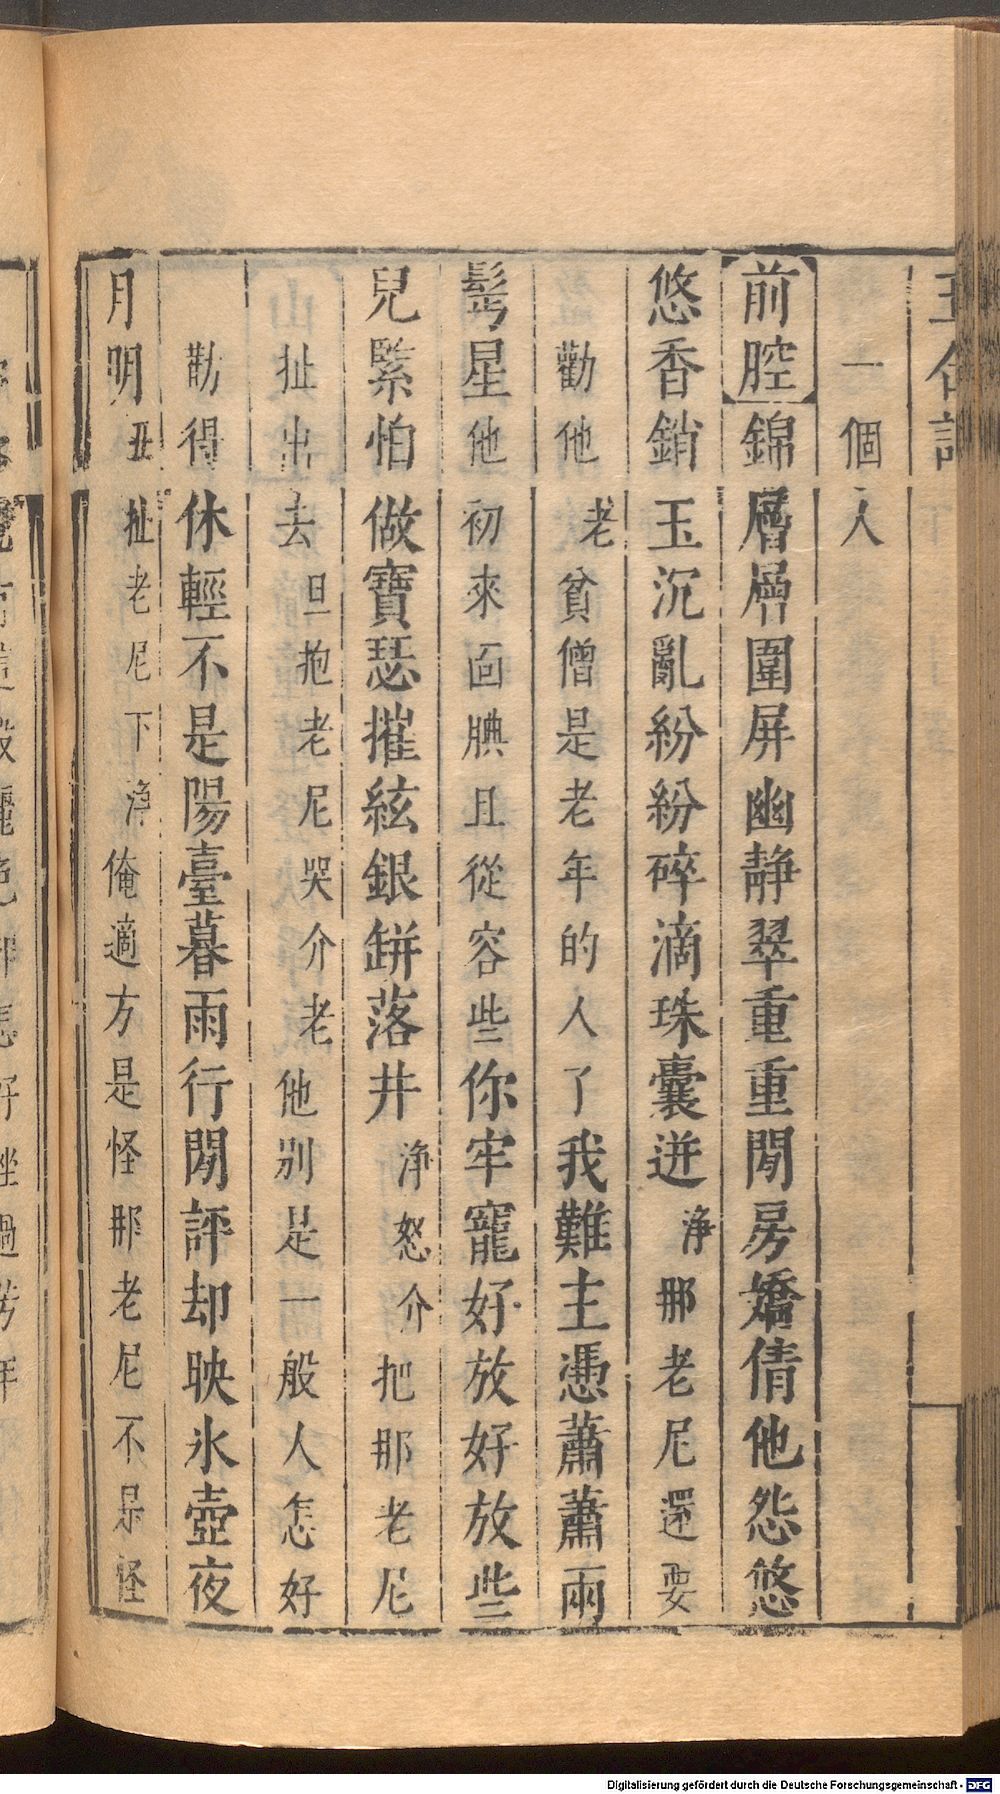 玉合記
一個人
前腔錦層層圍屏幽靜翠重重閒房嬌倩他怨悠
悠香銷玉沉亂紛紛碎滴珠囊迸淨那老尼還要
勸他老貧僧是老年的人了我難主憑蕭蕭兩
髩星他初來面腆且從容些你牢寵好放好放些
兒緊怕做寶瑟摧絃銀缾落井淨怒介把那老尼
扯出去旦抱老尼哭介老他別是一般人怎好
勸得休輕不是陽臺暮雨行閒評却映氷壺夜
月明丑扯老尼下淨俺適方是怪那老尼不是怪
Digitalisierung gefördert durch die Deutsche Forschungsgemeinschaft - DFG